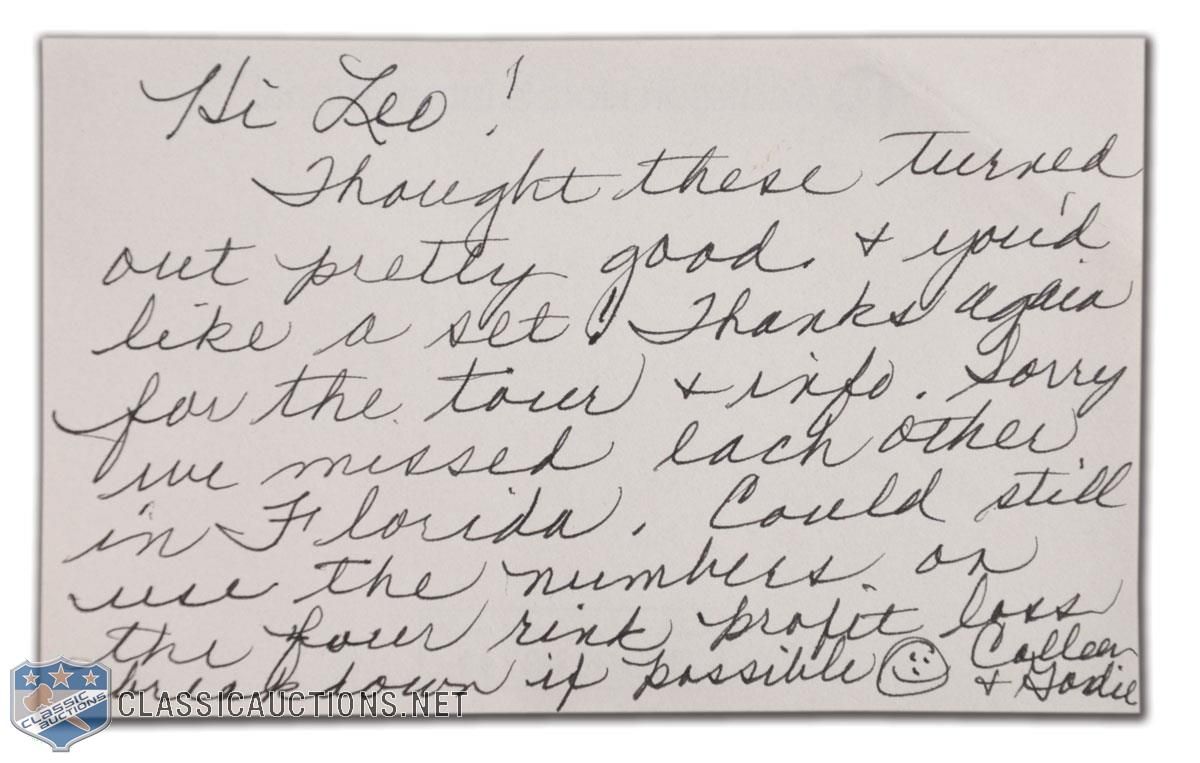 Hi Leo!
Thought these turned
out pretty good & you'd
like a set! Thanks again
for the tour & info. Sorry
we missed each other
in Florida. Could still
use the numbers on
the four rink profit loss
breakdown if possible ☺ Colleen
& Gordie
CLASSIC
AUCTIONS
CLASSICAUCTIONS.NET